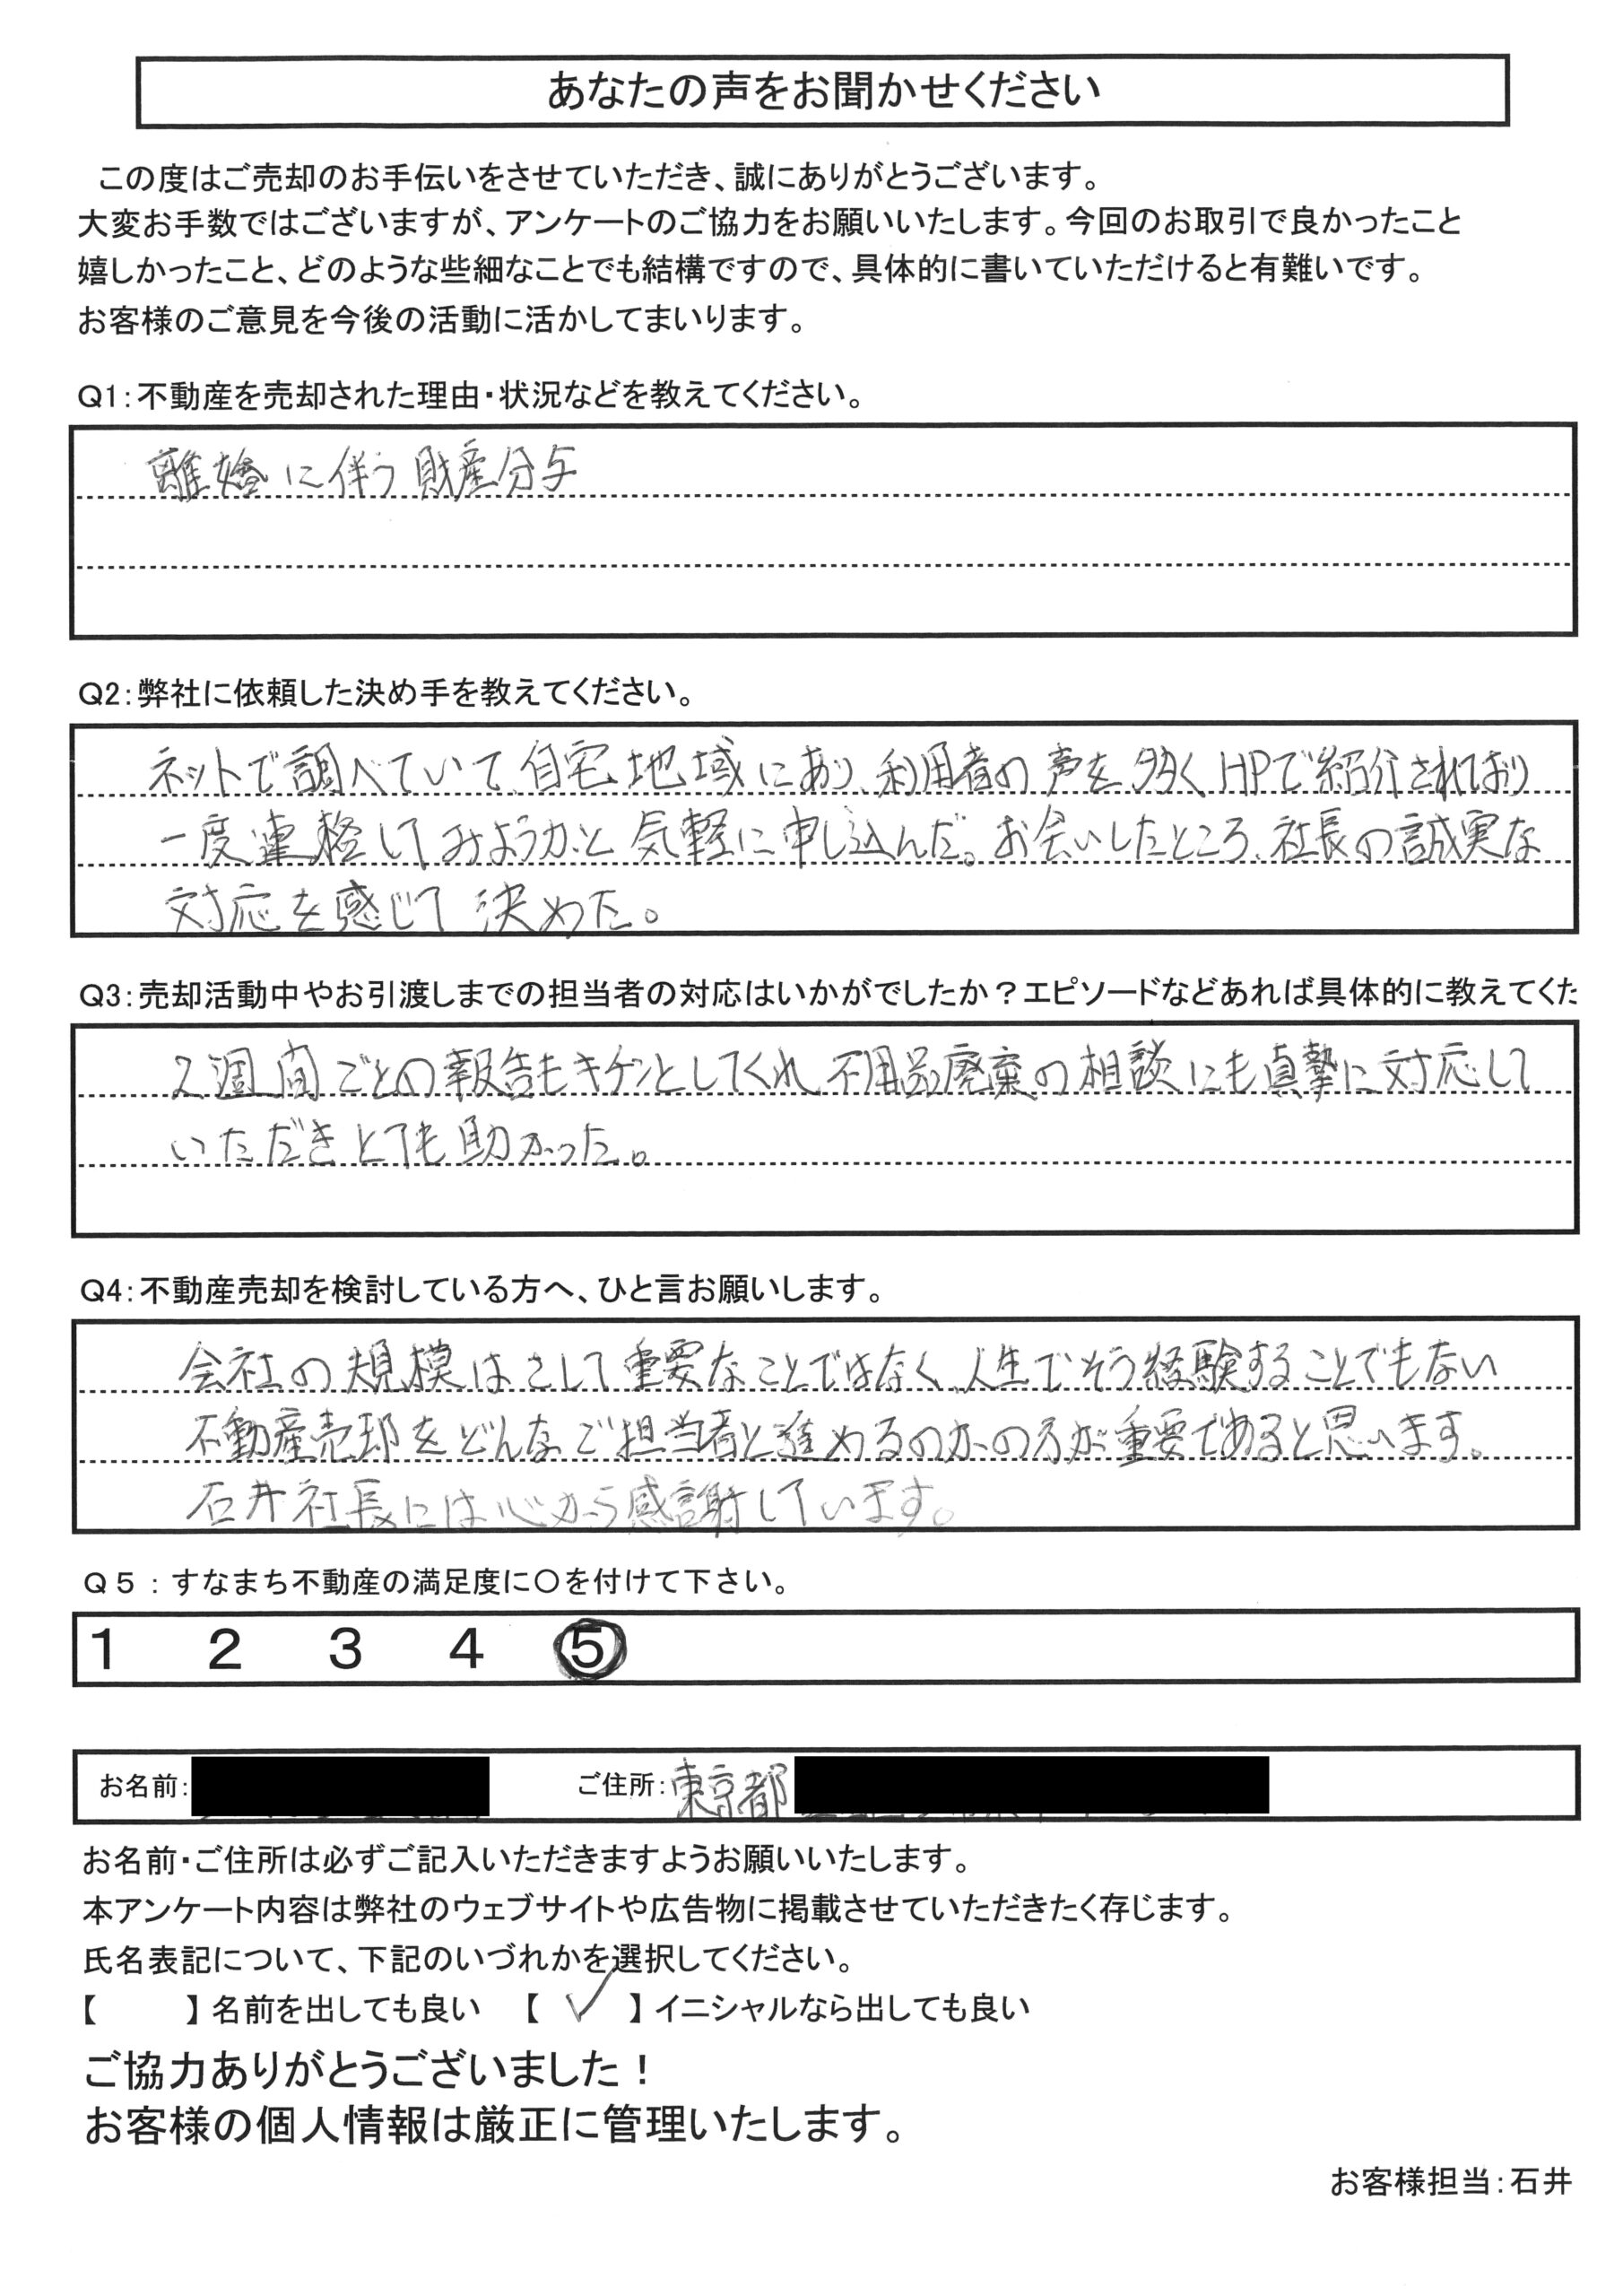 あなたの声をお聞かせください
この度はご売却のお手伝いをさせていただき、誠にありがとうございます。
大変お手数ではございますが、アンケートのご協力をお願いいたします。今回のお取引で良かったこと
嬉しかったこと、どのような些細なことでも結構ですので、具体的に書いていただけると有難いです。
お客様のご意見を今後の活動に活かしてまいります。
Q1:不動産を売却された理由・状況などを教えてください。
離婚に伴う財産分与
Q2:弊社に依頼した決め手を教えてください。
ネットで調べていて、自宅地域にあり、利用者の声を多くHPで紹介されており
一度連絡してみようかと気軽に申し込んだ。お会いしたところ、社長の誠実な
対応を感じて決めた。
Q3:売却活動中やお引渡しまでの担当者の対応はいかがでしたか？エピソードなどあれば具体的に教えてくた
2週間ごとの報告もキチンとしてくれ、不用品廃棄の相談にも真摯に対応して
いただきとても助かった。
Q4:不動産売却を検討している方へ、ひと言お願いします。
会社の規模はさして重要なことではなく、人生でそう経験することでもない
不動産売却をどんなご担当者と進めるのかの方が重要であると思います。
石井社長には心から感謝しています。
Q5：すなまち不動産の満足度に〇を付けて下さい。
1 2 3 4 5
お名前: ご住所:東京都
お名前・ご住所は必ずご記入いただきますようお願いいたします。
本アンケート内容は弊社のウェブサイトや広告物に掲載させていただきたく存じます。
氏名表記について、下記のいづれかを選択してください。
【 】名前を出しても良い 【 ✓ 】イニシャルなら出しても良い
ご協力ありがとうございました！
お客様の個人情報は厳正に管理いたします。
お客様担当:石井